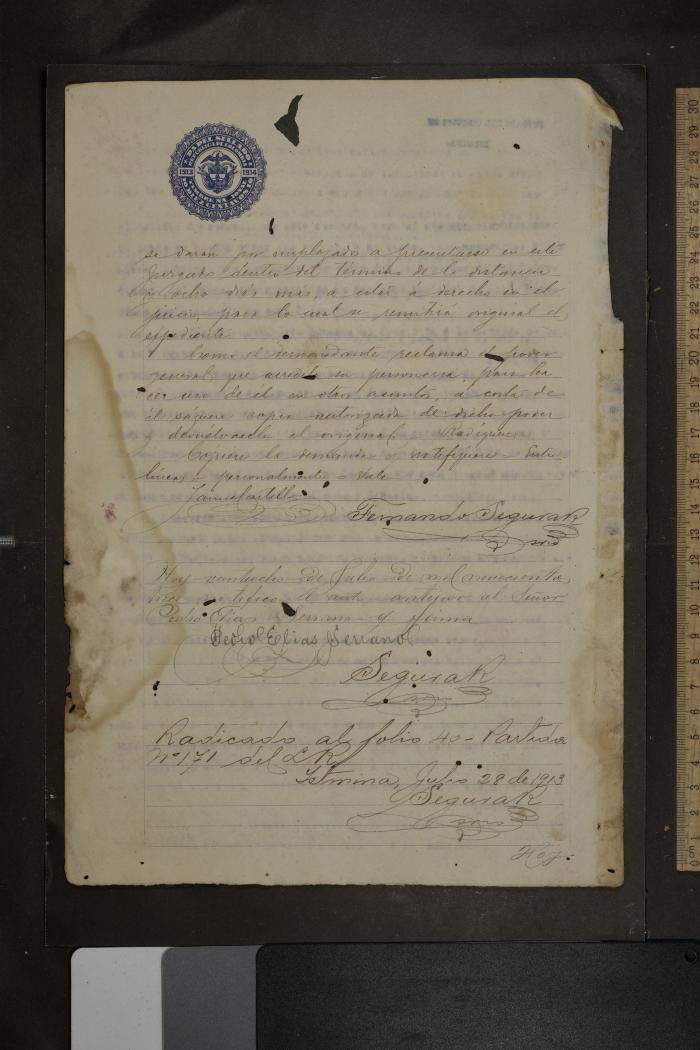 PAPEL SELLADO
1913 1914
se daran por emplazado a presentarse en este
Juzgado dentro del término de la distancia
y ocho dias mas, a estar a derecho en el
juicio, para lo cual se remitirá original el
expediente.
Como el demandante reclama el poder
general que acredita su personería, para ha
cer uso de él en otros asuntos, a costa de
él saquese copia autorizada de dicho poder
y devuélvasele el original. Radíquese
Cópiese la demanda y notifíquese - Entre
líneas - personalmente - Vale
Fernando Segura R
Hoy veintiocho de Julio de mil novecientos
trece notifico el auto anterior al Señor
Pedro Elias Serrano y firma
Pedro Elias Serrano
Segura R
Radicado al folio 40 - Partida
Nº 171 del L. R.
Istmina, Julio 28 de 1913
Segura R
Hoy.